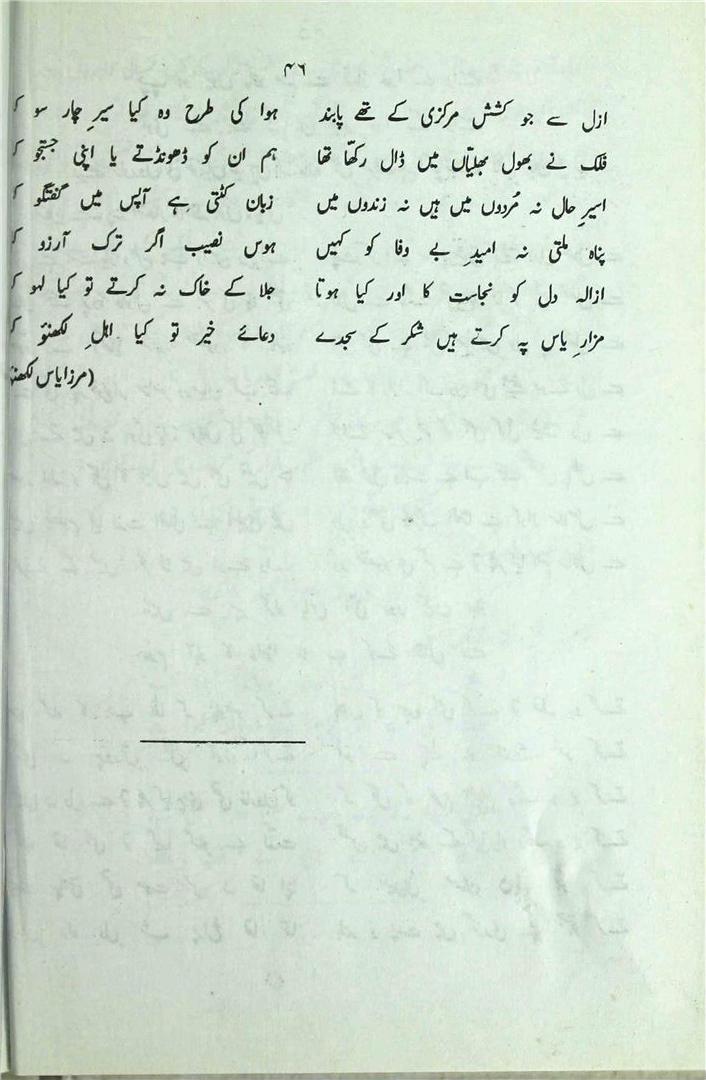 ۴۶
ازل سے جو کشش مرکزی کے تھے پابند ہوا کی طرح وہ کیا سیرِ چار سو
فلک نے بھول بھلیّاں میں ڈال رکھّا تھا ہم ان کو ڈھونڈتے یا اپنی جستجو
اسیرِ حال نہ مُردوں میں ہیں نہ زندوں میں زبان کٹتی ہے آپس میں گفتگو
پناہ ملتی نہ امیدِ بے وفا کو کہیں ہوس نصیب اگر ترک آرزو
ازالہ دل کو نجاست کا اور کیا ہوتا جلا کے خاک نہ کرتے تو کیا لہو
مزارِ یاس پہ کرتے ہیں شکر کے سجدے دعائے خیر تو کیا اہلِ لکھنؤ
(مرزا یاس